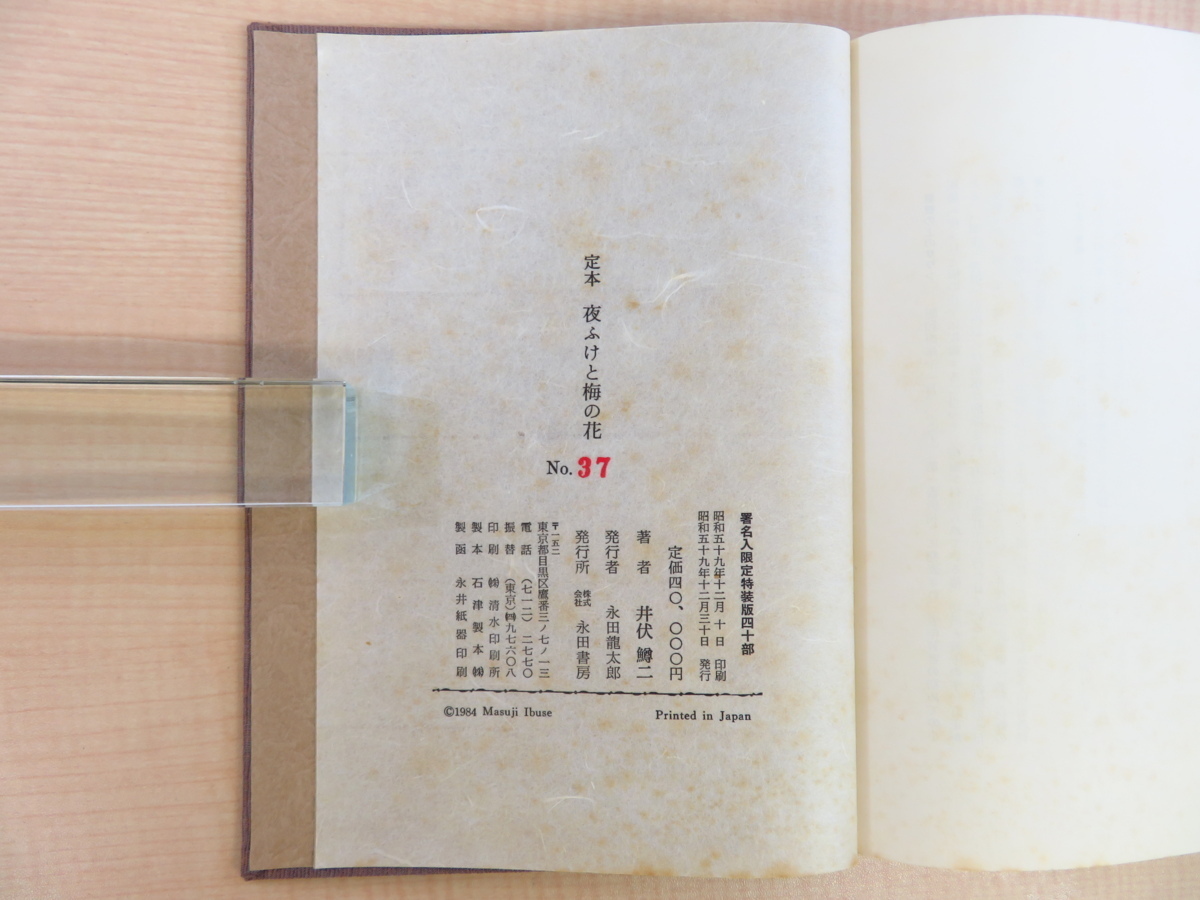 定本 夜ふけと梅の花
No. 37
署名入限定特装版四十部
昭和五十九年十二月 十 日 印刷
昭和五十九年十二月三十日 発行
定価四〇、〇〇〇円
著者 井伏鱒二
発行者 永田龍太郎
発行所 株式会社 永田書房
〒一五二
東京都目黒区鷹番三ノ七ノ一三
電話 (七一二) 二七七〇
振替 (東京) 九七六〇八
印刷 ㈱清水印刷所
製本 石津製本㈱
製函 永井紙器印刷
©1984 Masuji Ibuse
Printed in Japan